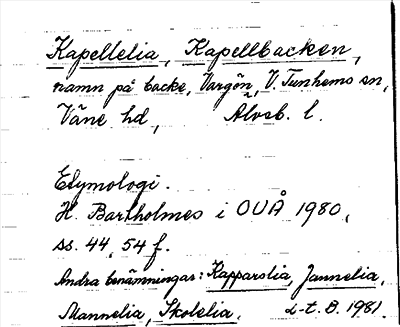 Kapellelia, Kapellbacken,
namn på backe, Vargön, V. Tunhems sn,
Väne hd, Älvsb. l.
Etymologi.
H. Bartholmes i OUÅ 1980,
ss. 44, 54 f.
Andra benämningar: Kapparslia, Jannelia,
Mannelia, Skolelia. 1981.